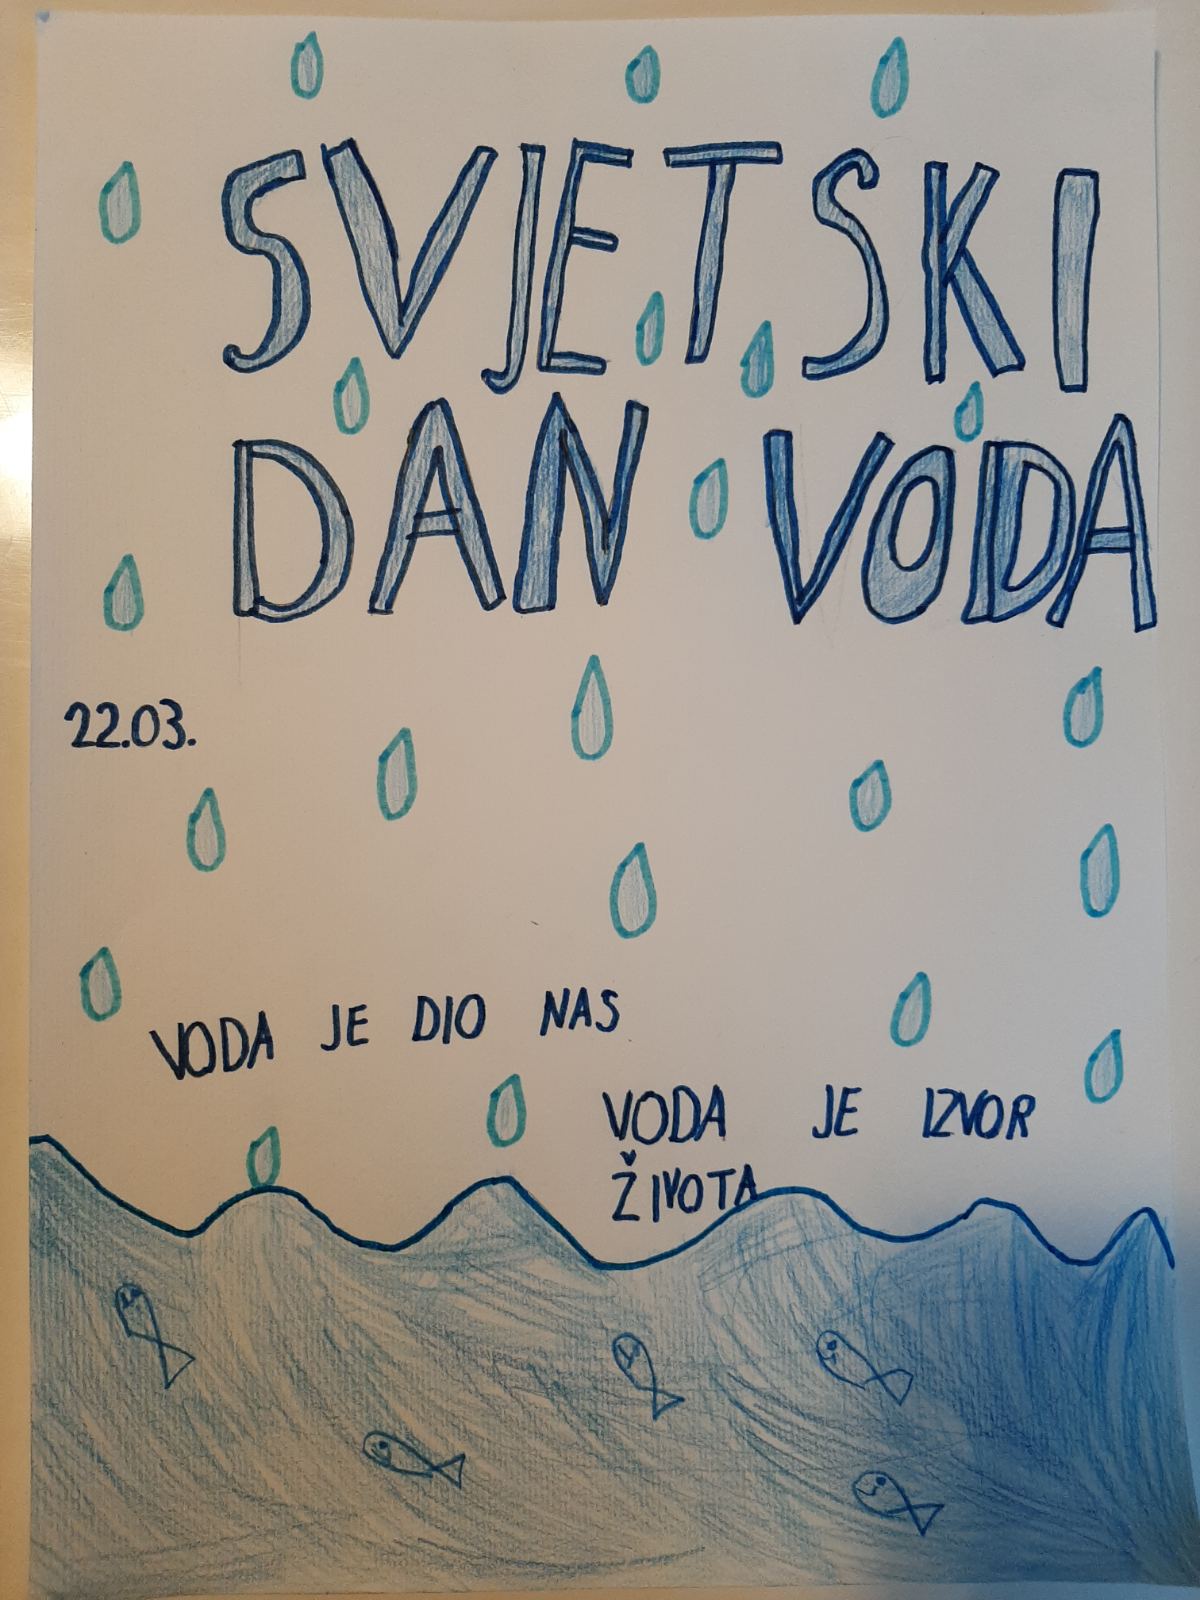 SVJETSKI
DAN VODA
22.03.
VODA JE DIO NAS
VODA JE IZVOR
ŽIVOTA